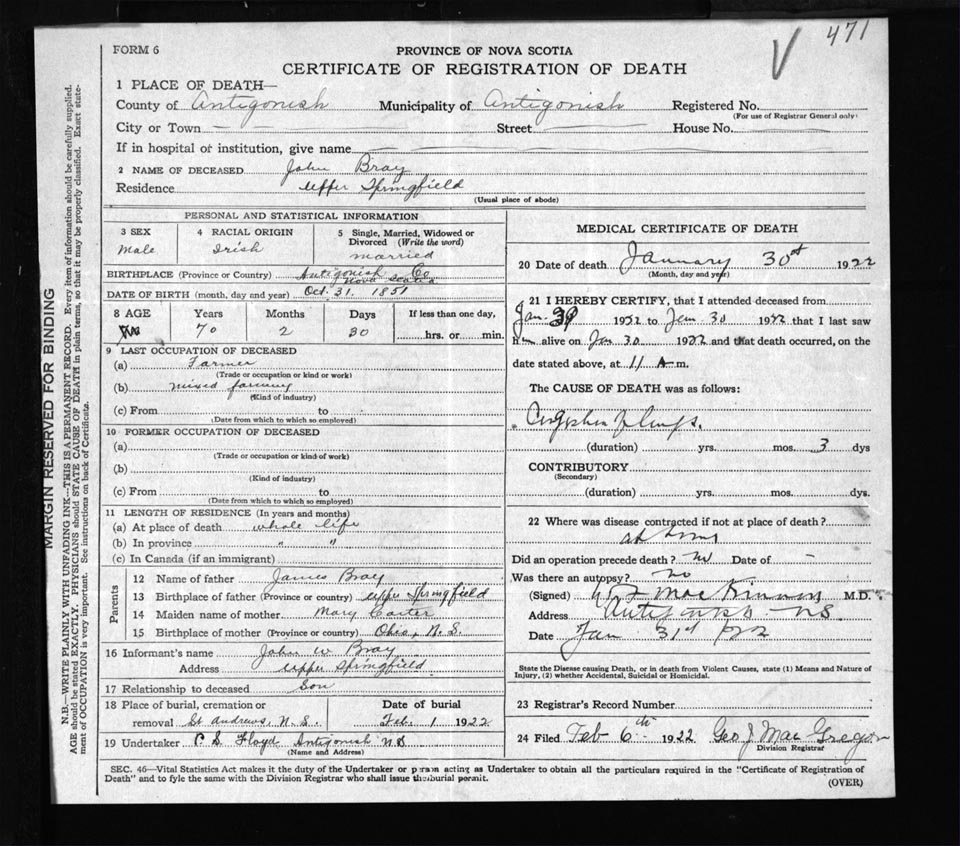 471
FORM 6
PROVINCE OF NOVA SCOTIA
CERTIFICATE OF REGISTRATION OF DEATH
1 PLACE OF DEATH—
County of Antigonish Municipality of Antigonish Registered No.
(For use of Registrar General only)
City or Town Street House No.
If in hospital or institution, give name
2 NAME OF DECEASED John Bray
Residence Upper Springfield
(Usual place of abode)
PERSONAL AND STATISTICAL INFORMATION
3 SEX
Male
4 RACIAL ORIGIN
Irish
5 Single, Married, Widowed or
Divorced (Write the word)
married
BIRTHPLACE (Province or Country) Antigonish Co
Nova Scotia
DATE OF BIRTH (month, day and year) Oct. 31. 1851
8 AGE Years Months Days If less than one day,
70 2 30 hrs. or min.
9 LAST OCCUPATION OF DECEASED
(a) Farmer
(Trade or occupation or kind or work)
(b) mixed farming
(Kind of industry)
(c) From to
(Date from which to which so employed)
10 FORMER OCCUPATION OF DECEASED
(a)
(Trade or occupation or kind of work)
(b)
(Kind of industry)
(c) From to
(Date from which to which so employed)
11 LENGTH OF RESIDENCE (In years and months)
(a) At place of death whole life
(b) In province " "
(c) In Canada (if an immigrant)
Parents
12 Name of father James Bray
13 Birthplace of father (Province or country) Upper Springfield
14 Maiden name of mother Mary Carter
15 Birthplace of mother (Province or country) Ohio, N. S.
16 Informant's name John W Bray
Address Upper Springfield
17 Relationship to deceased Son
18 Place of burial, cremation or
removal St Andrews, N. S.
Date of burial
Feb. 1 1922
19 Undertaker C S Floyd Antigonish NS
(Name and Address)
MEDICAL CERTIFICATE OF DEATH
20 Date of death January 30st 1922
(Month, day and year)
21 I HEREBY CERTIFY, that I attended deceased from
Jan. 1922 to Jan 30 1922 that I last saw
him alive on Jan 30 1922 and that death occurred, on the
date stated above, at 11 A m.
The CAUSE OF DEATH was as follows:
(duration) yrs. mos. 3 dys
CONTRIBUTORY
(Secondary)
(duration) yrs. mos. dys.
22 Where was disease contracted if not at place of death?
at home
Did an operation precede death? no Date of -
Was there an autopsy? no
(Signed) MacKinnon M.D.
Address Antigonish NS
Date Jan 31st 1922
State the Disease causing Death, or in death from Violent Causes, state (1) Means and Nature of
Injury, (2) whether Accidental, Suicidal or Homicidal.
23 Registrar's Record Number
24 Filed Feb 6th 1922 Geo J. MacGregor
Division Registrar
SEC. 46—Vital Statistics Act makes it the duty of the Undertaker or person acting as Undertaker to obtain all the particulars required in the "Certificate of Registration of
Death" and to fyle the same with the Division Registrar who shall issue the burial permit.
(OVER)
MARGIN RESERVED FOR BINDING
N.B.—WRITE PLAINLY WITH UNFADING INK—THIS IS A PERMANENT RECORD. Every item of information should be carefully supplied.
AGE should be stated EXACTLY. PHYSICIANS should STATE CAUSE OF DEATH in plain terms, so that it may be properly classified. Exact state-
ment of OCCUPATION is very important. See instructions on back of Certificate.